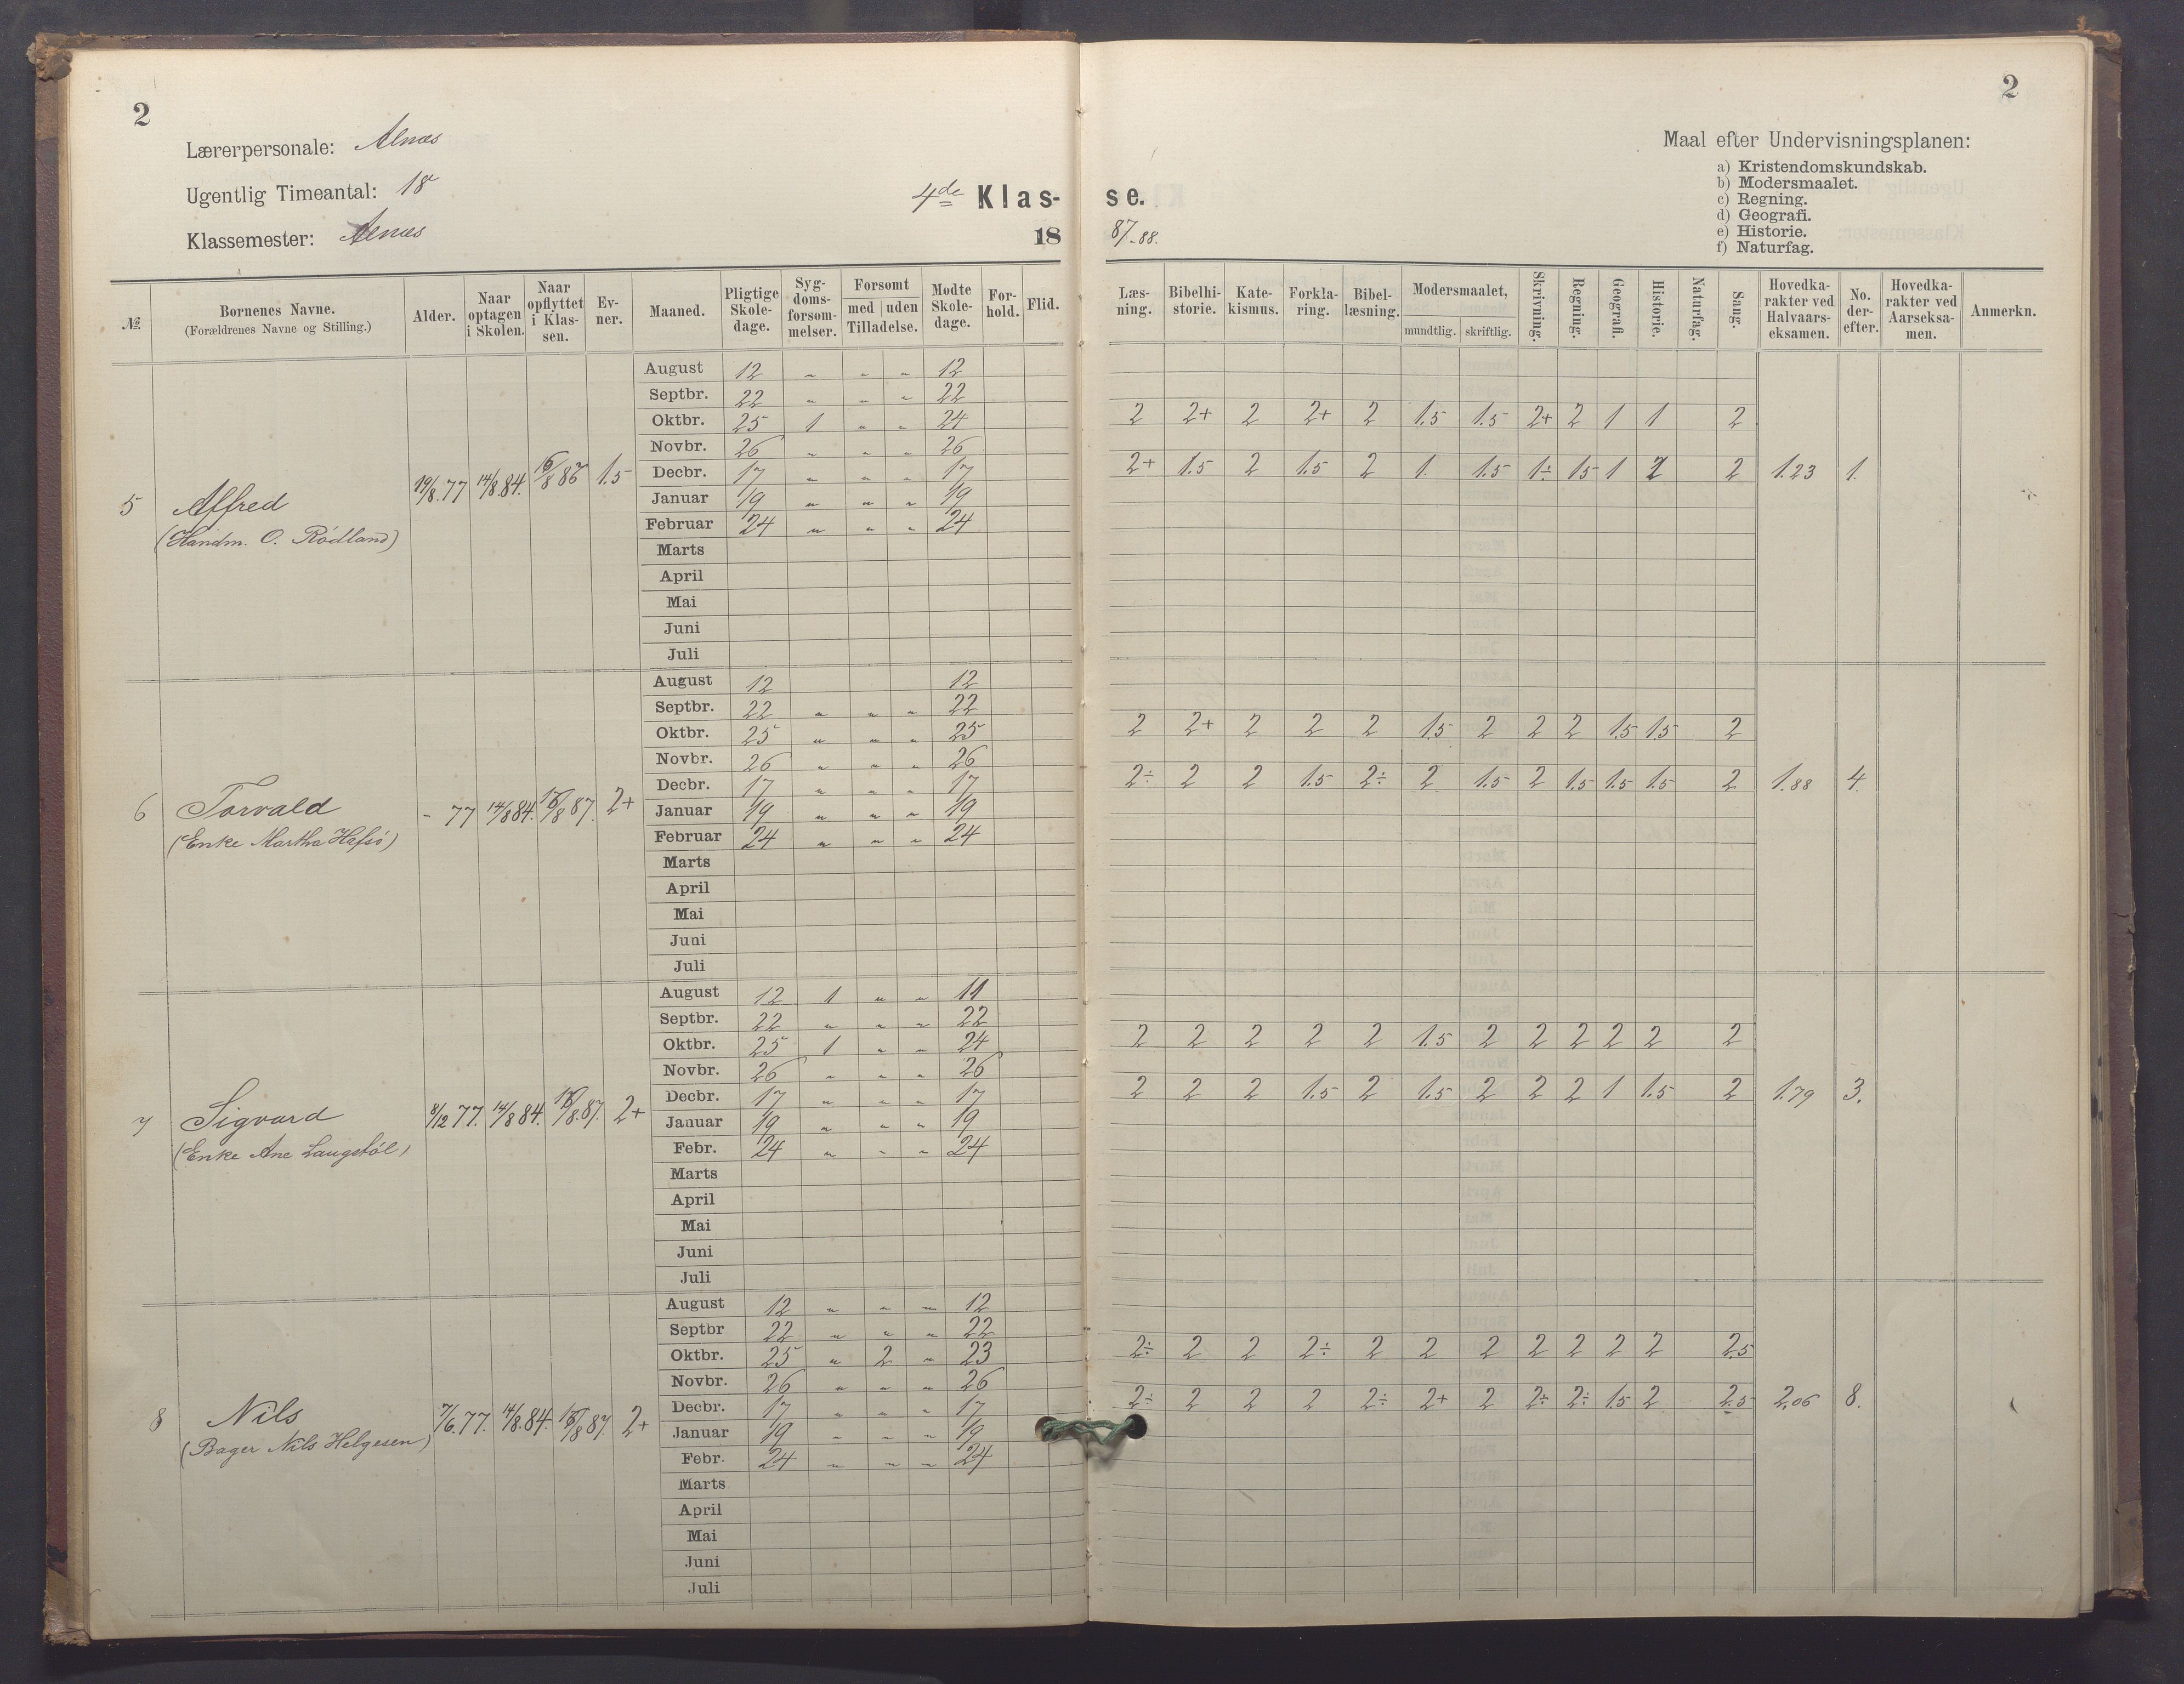 2
2
Lærerpersonale: Alnæs
Ugentlig Timeantal: 18
Klassemester: Alnæs
4de Klas-se.
18 87-88.
Maal efter Undervisningsplanen:
a) Kristendomskundskab.
b) Modersmaalet.
c) Regning.
d) Geografi.
e) Historie.
f) Naturfag.
№ | Børnenes Navne. (Forældrenes Navne og Stilling.) | Alder. | Naar optagen i Skolen. | Naar opflyttet i Klassen. | Evner. | Maaned. | Pligtige Skoledage. | Sygdomsforsømmelser. | Forsømt med uden Tilladelse. | Mødte Skoledage. | Forhold. | Flid. | Læsning. | Bibelhistorie. | Katekismus. | Forklaring. | Bibellæsning. | Modersmaalet, mundtlig. skriftlig. | Skrivning. | Regning. | Geografi. | Historie. | Naturfag. | Sang. | Hovedkarakter ved Halvaarseksamen. | No. derefter. | Hovedkarakter ved Aarseksamen. | Anmerkn.
5 Alfred
(Handm. O. Rødland)
19/8.77 14/8.84. 16/8 86 1.5
August 12 " " " 12
Septbr. 22 " " " 22
Oktbr. 25 1 " " 24 2 2+ 2 2+ 2 1.5 1.5 2+ 2 1 1 2
Novbr. 26 " " " 26
Decbr. 17 " " " 17 2+ 1.5 2 1.5 2 1. 1.5 1÷ 1.5 1 2 2 1.23 1.
Januar 19 " " " 19
Februar 24 " " " 24
Marts
April
Mai
Juni
Juli
6 Torvald
(Enke Martha Hafsö)
- 77 14/8 84. 16/8 87. 2+
August 12 12
Septbr. 22 " " " 22
Oktbr. 25 " " " 25 2 2+ 2 2 2 1.5 2 2 2 1.5 1.5 2
Novbr. 26 " " " 26
Decbr. 17 " " " 17 2÷ 2 2 1.5 2÷ 2 1.5 2 1.5 1.5 1.5 2 1.88 4.
Januar 19 " " " 19
Februar 24 " " " 24
Marts
April
Mai
Juni
Juli
7 Sigvard
(Enke Ane Laugstöl)
8/12 77. 14/8 84. 16/8.87. 2+
August 12 1 " " 11
Septbr. 22 " " " 22
Oktbr. 25 1 " " 24 2 2 2 2 2 1.5 2 2 2 2 2 2
Novbr. 26 " " " 26
Decbr. 17 " " " 17 2 2 2 1.5 2 1.5 2 2 2 1 1.5 2 1.79 3.
Januar 19 " " " 19
Febr. 24 " " " 24
Marts
April
Mai
Juni
Juli
8 Nils
(Bager Nils Helgesen)
7/6.77. 14/8.84. 16/8 87. 2+
August 12 " " " 12
Septbr 22 " " " 22
Oktbr. 25 " 2 " 23 2÷ 2 2 2÷ 2 2 2 2 2 2 2 2.5
Novbr. 26 " " " 26
Decbr. 17 " " " 17 2÷ 2 2 2 2÷ 2+ 2 2÷ 2÷ 1.5 2 2.5 2.06 8.
Januar 19 " " " 19
Febr. 24 " " " 24
Marts
April
Mai
Juni
Juli